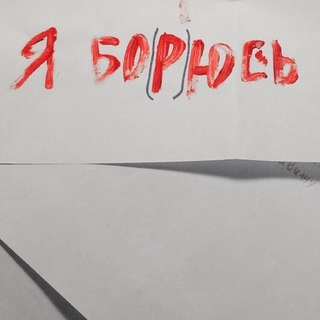 Я БО(Р)ЮСЬ